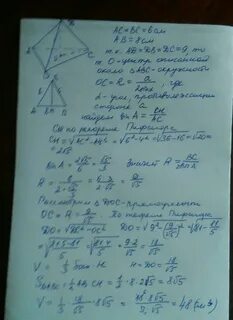 AC = BC = 6 см
AB = 8 см
т.к. AD = DB = DC = 9, то
т. O - центр описанной
около △ABC окружности
OC = R = a / 2sinα, где
α - угол, противолежащий
стороне a
найдем sin A = CH / AC
CH по теореме Пифагора
CH = √AC² - AH² = √6² - 4² = √36 - 16 = √20 =
= 2√5
sin A = 2√5 / 6 = √5 / 3. Значит R = BC / 2sin A
R = 6 / (2·√5/3) = 9 / √5
Рассмотрим △ DOC - прямоугольный
OC = R = 9 / √5. По теореме Пифагора
DO = √DC² - OC² DO = √9² - (9/√5)² = √81 - 81/5
= 18 / √5
V = 1/3 Sосн H H = DO = 18 / √5
Sосн = 1/2 AB · CH = 1/2 · 8 · 2√5 = 8√5
V = 1/3 · 18/√5 · 8√5 = = 48 (см³)